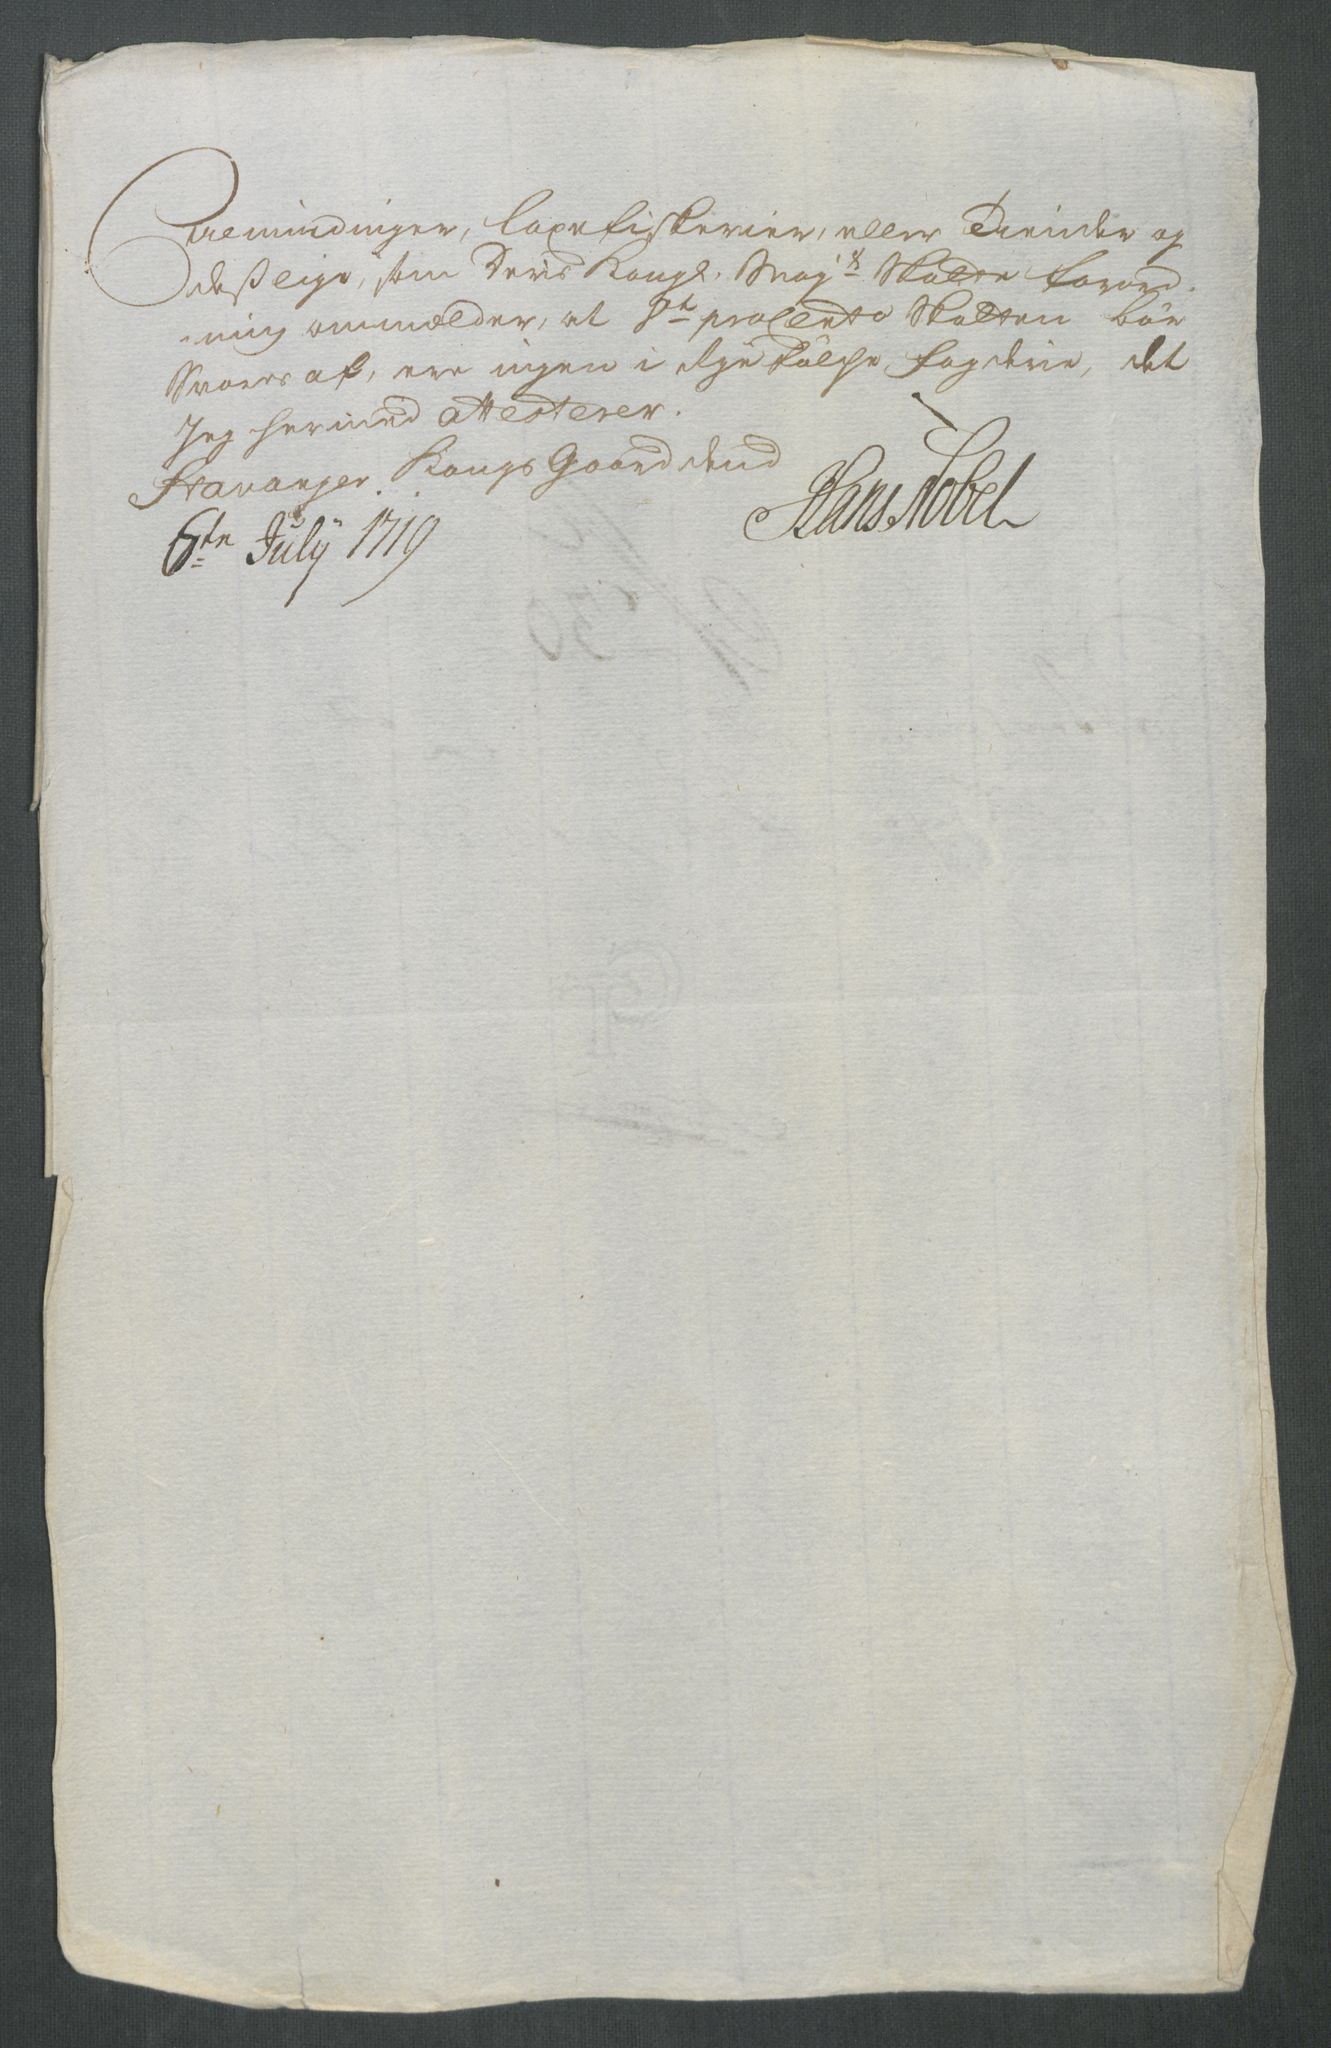 Almindinger, Laxefiskerier, eller Tiender og
desslige, som Deris Kongl. May:ts Skatte forord-
ning ommælder, at 8t: pro Cento Skatten bør
Svares af, ere ingen i dye følge fogderie, det
Jeg hermed attesterer.
Stavanger Kongs Gaard dend
6te July 1719 Hans Nobel